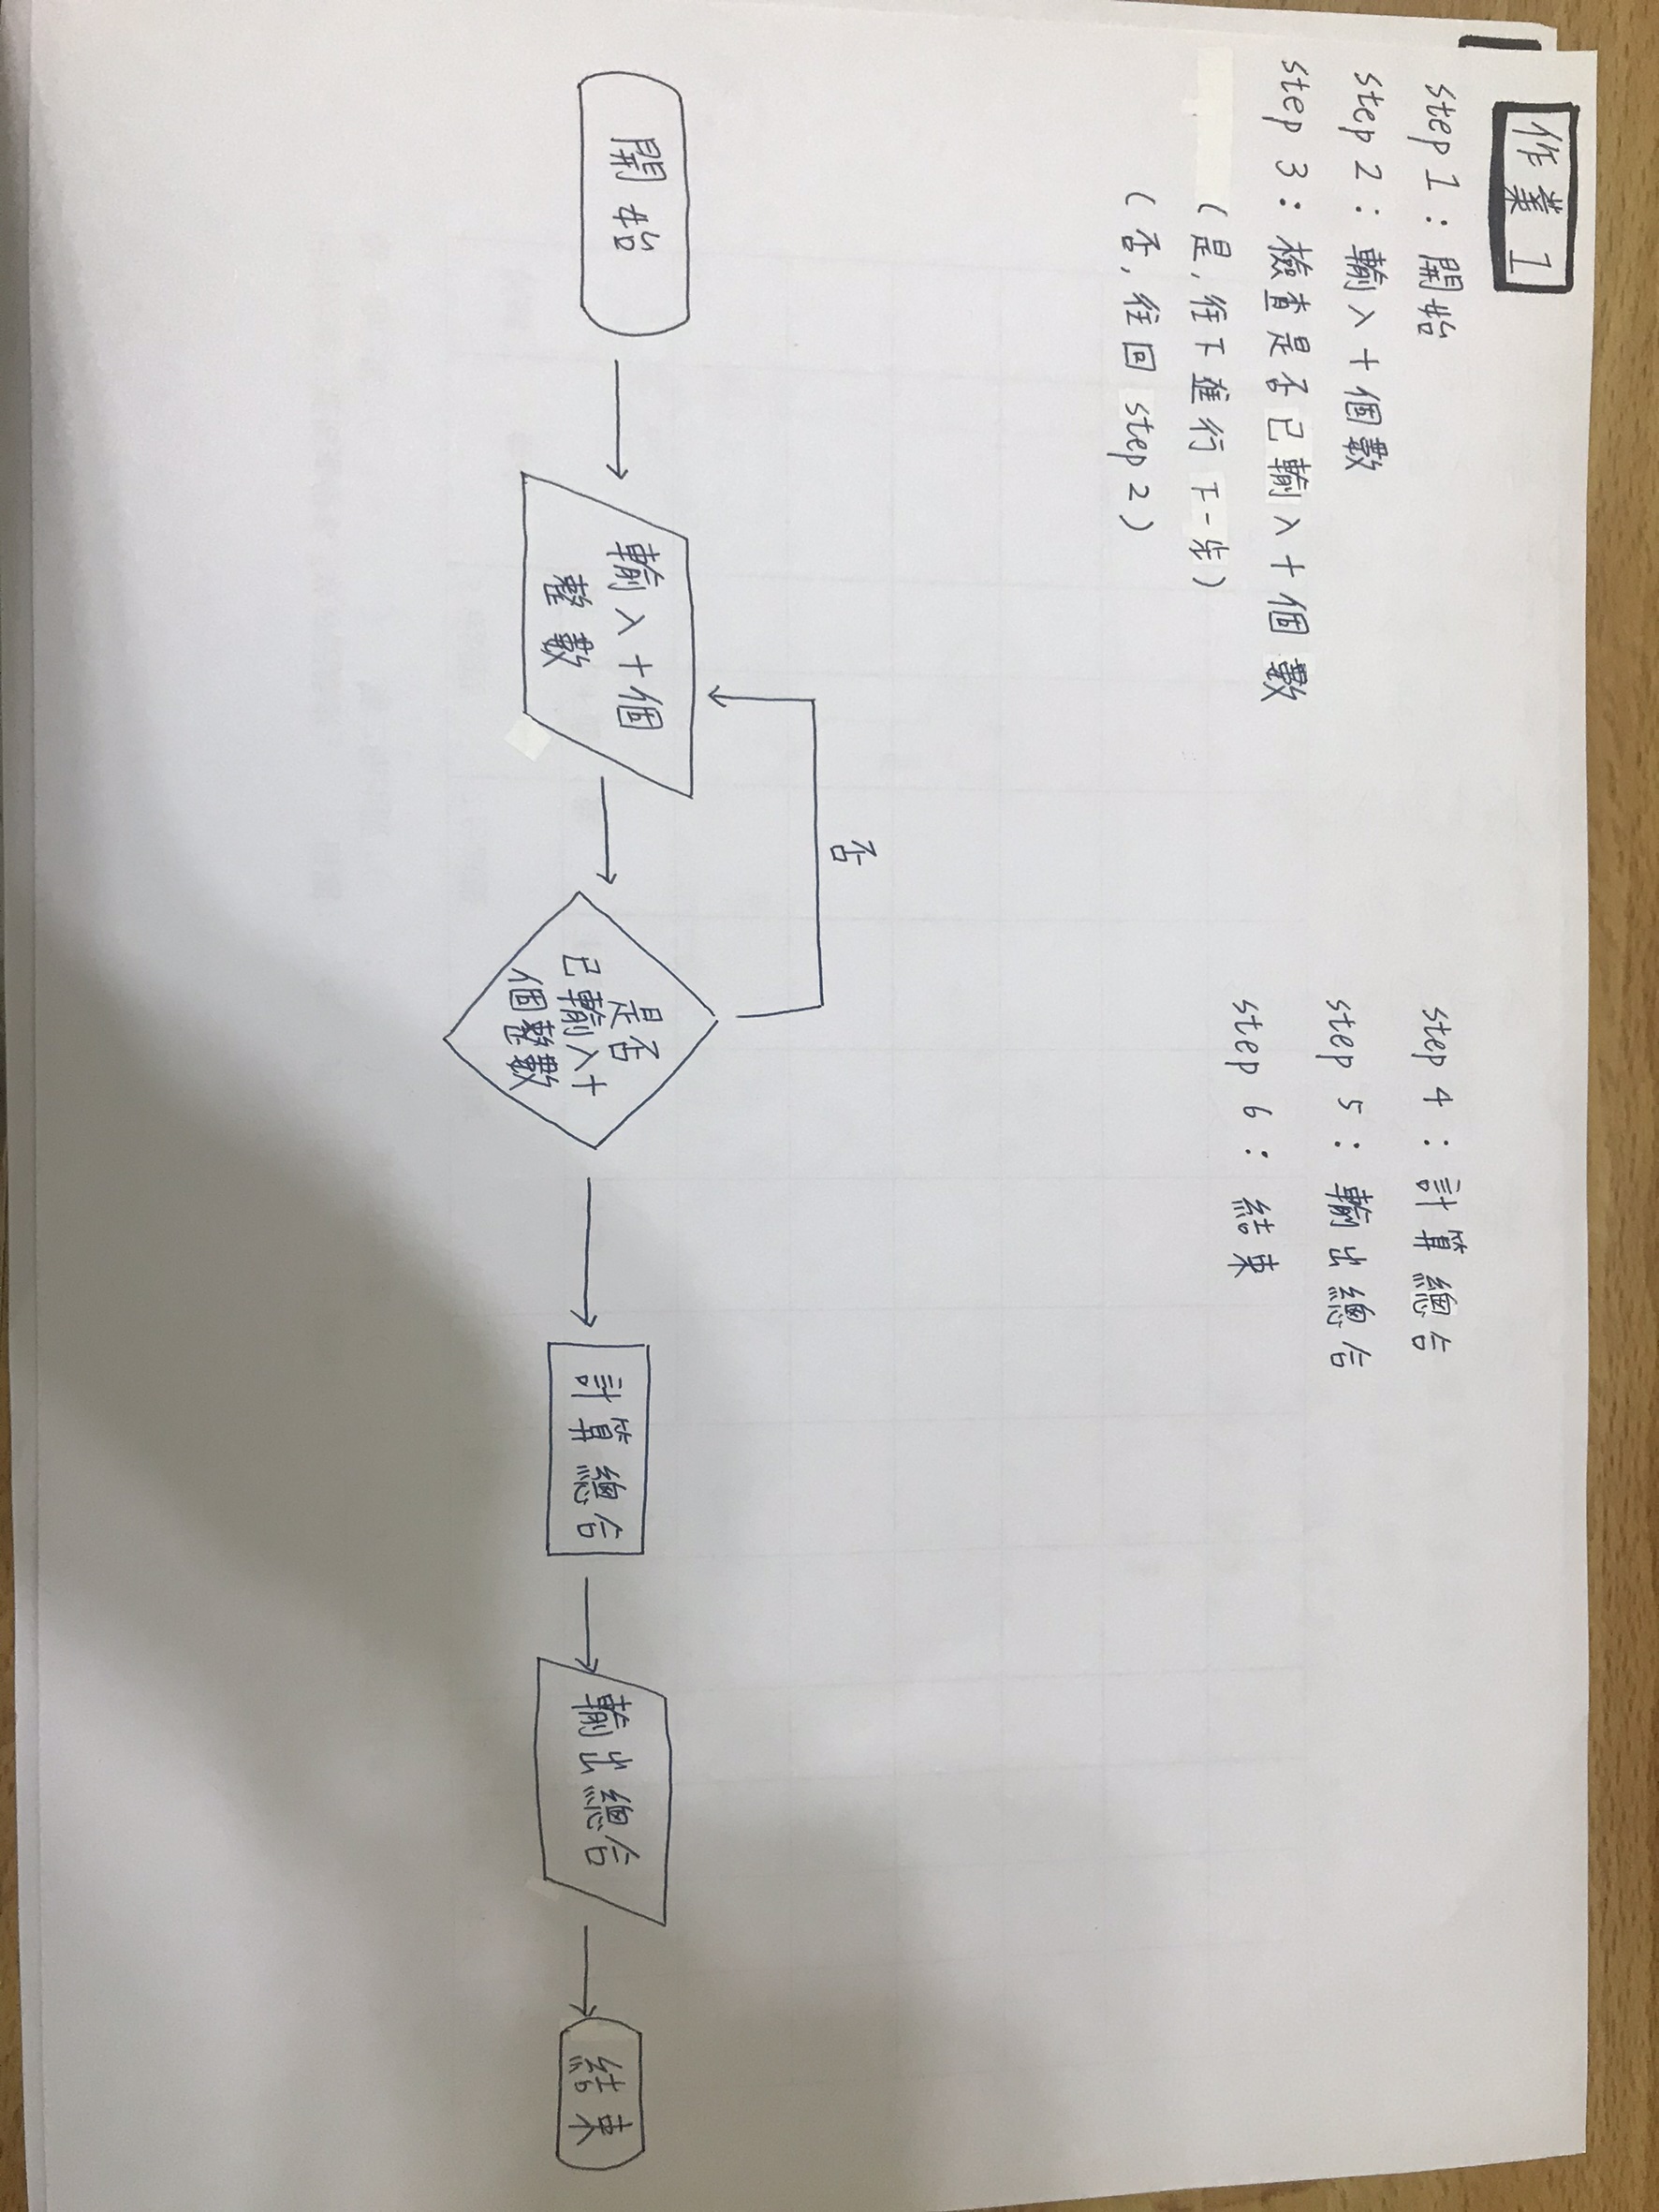 作業 1
step 1：開始
step 2：輸入十個數
step 3：檢查是否已輸入十個數
(是,往下進行下一步)
(否,往回 step 2)
step 4：計算總合
step 5：輸出總合
step 6：結束
開始
輸入十個
整數
是否
已輸入十
個整數
否
計算總合
輸出總合
結束